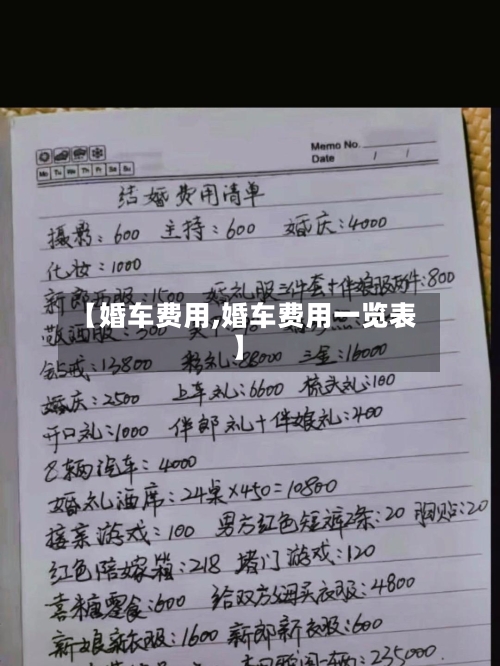 Memo No.
Date / /
Mo Tu We Th Fr Sa Su
结婚费用清单
摄影：600 主持：600 婚庆：4000
化妆：1000
新郎西服：1500 婚礼服三件套+伴娘服两件：800
【婚车费用,婚车费用一览表
】
敬酒服：300
钻戒：13800 彩礼：88000 三金：16000
婚庆：2500 上车礼：6600 梳头礼：100
开口礼：1000 伴郎礼+伴娘礼：400
8辆汽车：4000
婚礼酒席：24桌×450=10800
接亲游戏：100 男方红色短裤2条：20 胸贴：20
红色陪嫁箱：218 堵门游戏：120
喜糖零食：600 给双方妈买衣服：4800
新娘新衣服：1600 新郎新衣服：600
235000